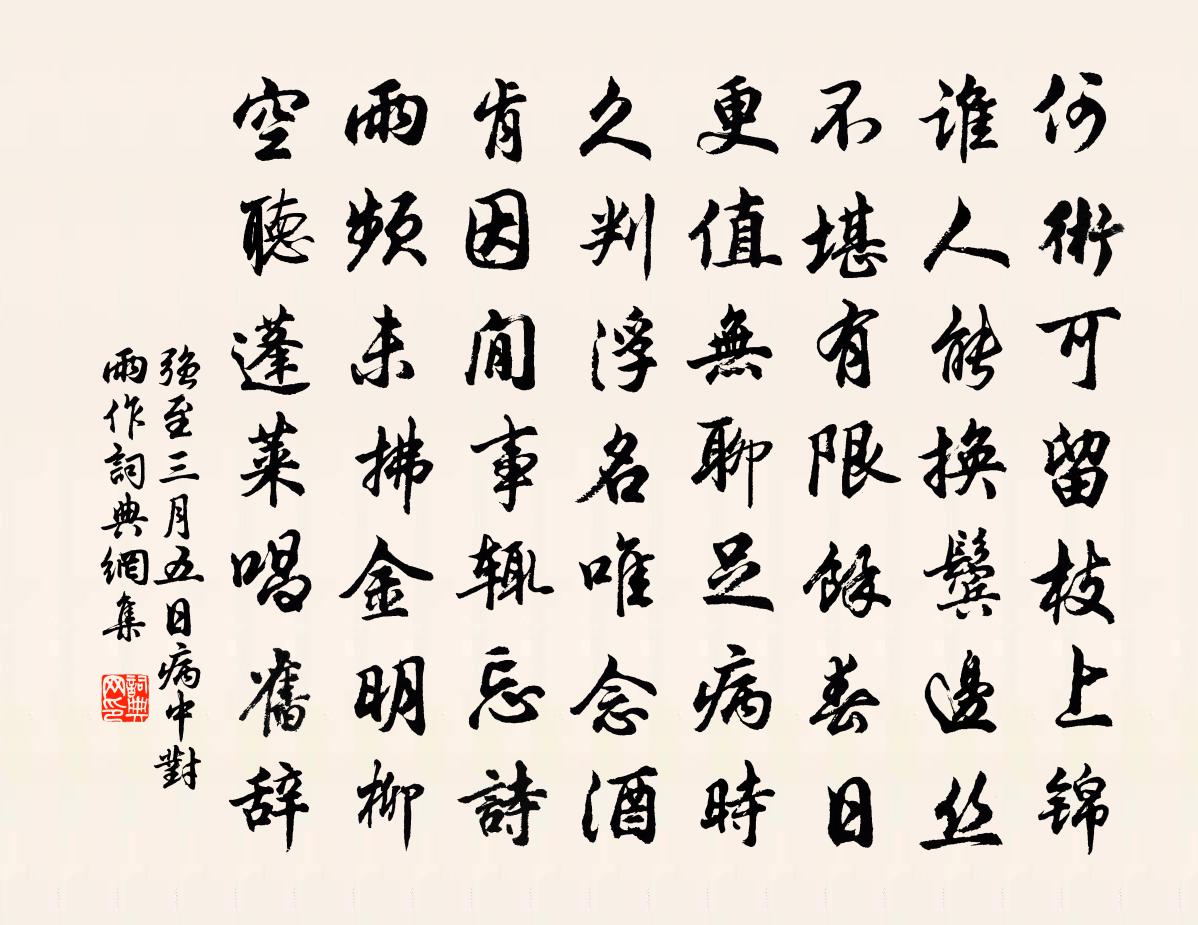 何術可留枝上锦
谁人能换鬓邊丝
不堪有限餘春日
更值無聊足病時
久判浮名唯念酒
肯因閒事辄忘詩
雨頻未拂金明柳
空聽蓬莱唱舊辞
强至三月五日病中對
雨作詞典網集
詞典网印